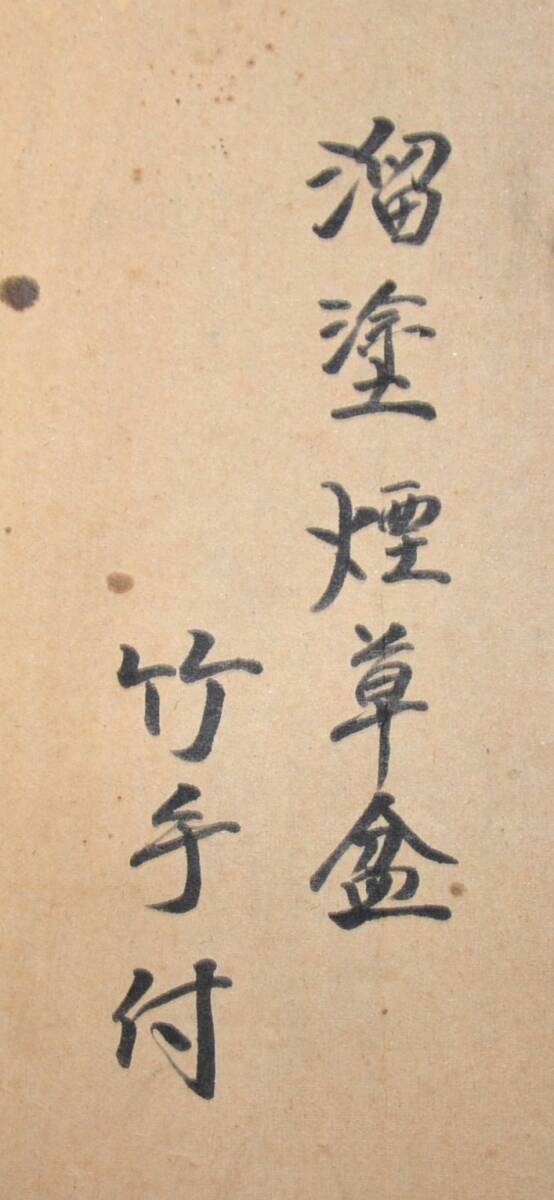 溜塗煙草盆
竹手付